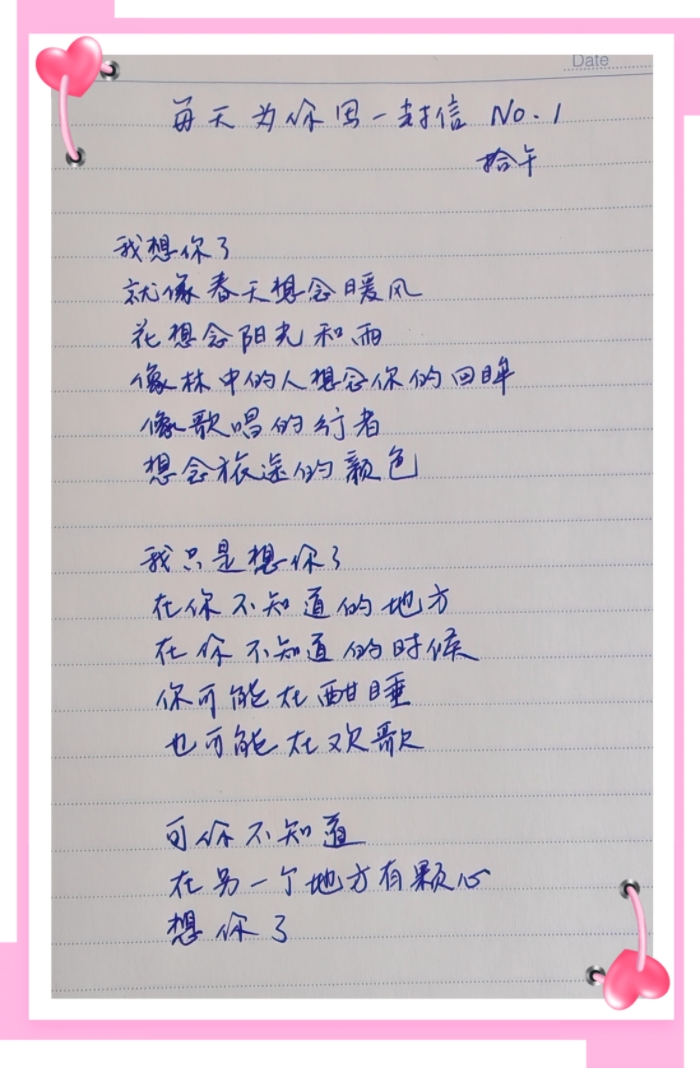 Date
每天为你写一封信 No.1
拾午
我想你了
就像春天想念暖风
花想念阳光和雨
像林中的人想念你的回眸
像歌唱的行者
想念旅途的颜色
我只是想你了
在你不知道的地方
在你不知道的时候
你可能在酣睡
也可能在欢歌
可你不知道
在另一个地方有颗心
想你了